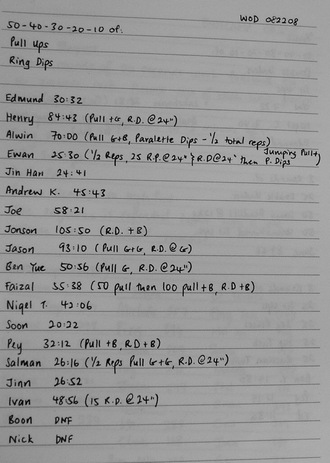 WOD 082208
50-40-30-20-10 of:
Pull Ups
Ring Dips
Edmund 30:32
Henry 84:43 (Pull +G, R.D. @24")
Alwin 70:00 (Pull G+B, Paralette Dips - 1/2 total reps)
Ewan 25:30 (1/2 Reps, 25 R.P.@24" & R.D@24" then Jumping Pull+, P. Dips
Jin Han 24:41
Andrew K. 45:43
Joe 58:21
Jonson 105:50 (R.D. +B)
Jason 93:10 (Pull G+G, R.D. @G)
Ben Yue 50:56 (Pull G, R.D. @24")
Faizal 55:38 (50 pull then 100 pull+B, R.D+B)
Nigel T. 42:06
Soon 20:22
Pey 32:12 (Pull +B, R.D+B)
Salman 26:16 (1/2 Reps Pull G+G, R.D. @24")
Jinn 26:52
Ivan 48:56 (15 R.D. @24")
Boon DNF
Nick DNF